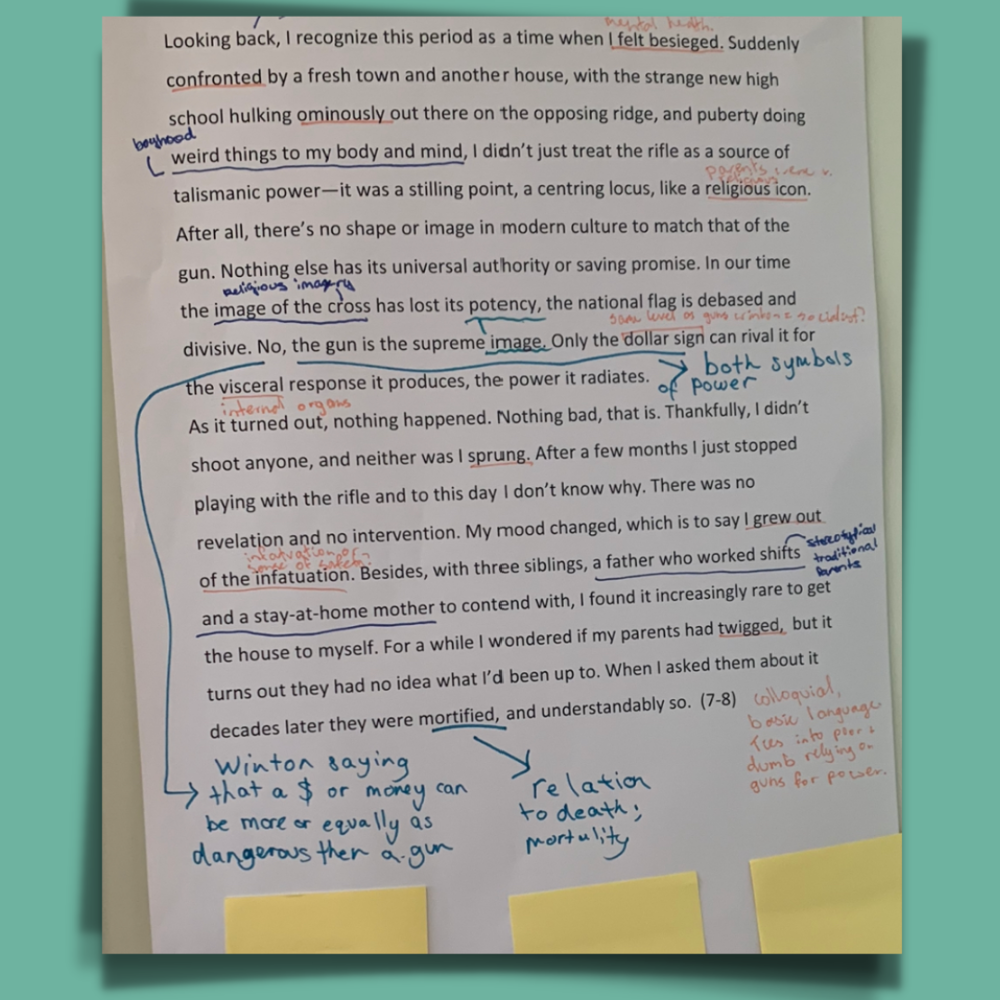 mental health.
Looking back, I recognize this period as a time when I felt besieged. Suddenly
confronted by a fresh town and another house, with the strange new high
school hulking ominously out there on the opposing ridge, and puberty doing
boyhood
weird things to my body and mind, I didn't just treat the rifle as a source of
parents were v.
religious
talismanic power—it was a stilling point, a centring locus, like a religious icon.
After all, there's no shape or image in modern culture to match that of the
gun. Nothing else has its universal authority or saving promise. In our time
religious imagery
the image of the cross has lost its potency, the national flag is debased and
same level as guns winton = socialist?
divisive. No, the gun is the supreme image. Only the dollar sign can rival it for
both symbols
of power
the visceral response it produces, the power it radiates.
internal organs
As it turned out, nothing happened. Nothing bad, that is. Thankfully, I didn't
shoot anyone, and neither was I sprung. After a few months I just stopped
playing with the rifle and to this day I don't know why. There was no
revelation and no intervention. My mood changed, which is to say I grew out
infatuation or
sense of safety?
of the infatuation. Besides, with three siblings, a father who worked shifts
stereotypical
traditional
parents
and a stay-at-home mother to contend with, I found it increasingly rare to get
the house to myself. For a while I wondered if my parents had twigged, but it
turns out they had no idea what I'd been up to. When I asked them about it
decades later they were mortified, and understandably so. (7-8)
colloquial,
basic language
Ties into poor +
dumb relying on
guns for power.
Winton saying
that a $ or money can
be more or equally as
dangerous then a gun
relation
to death;
mortulity